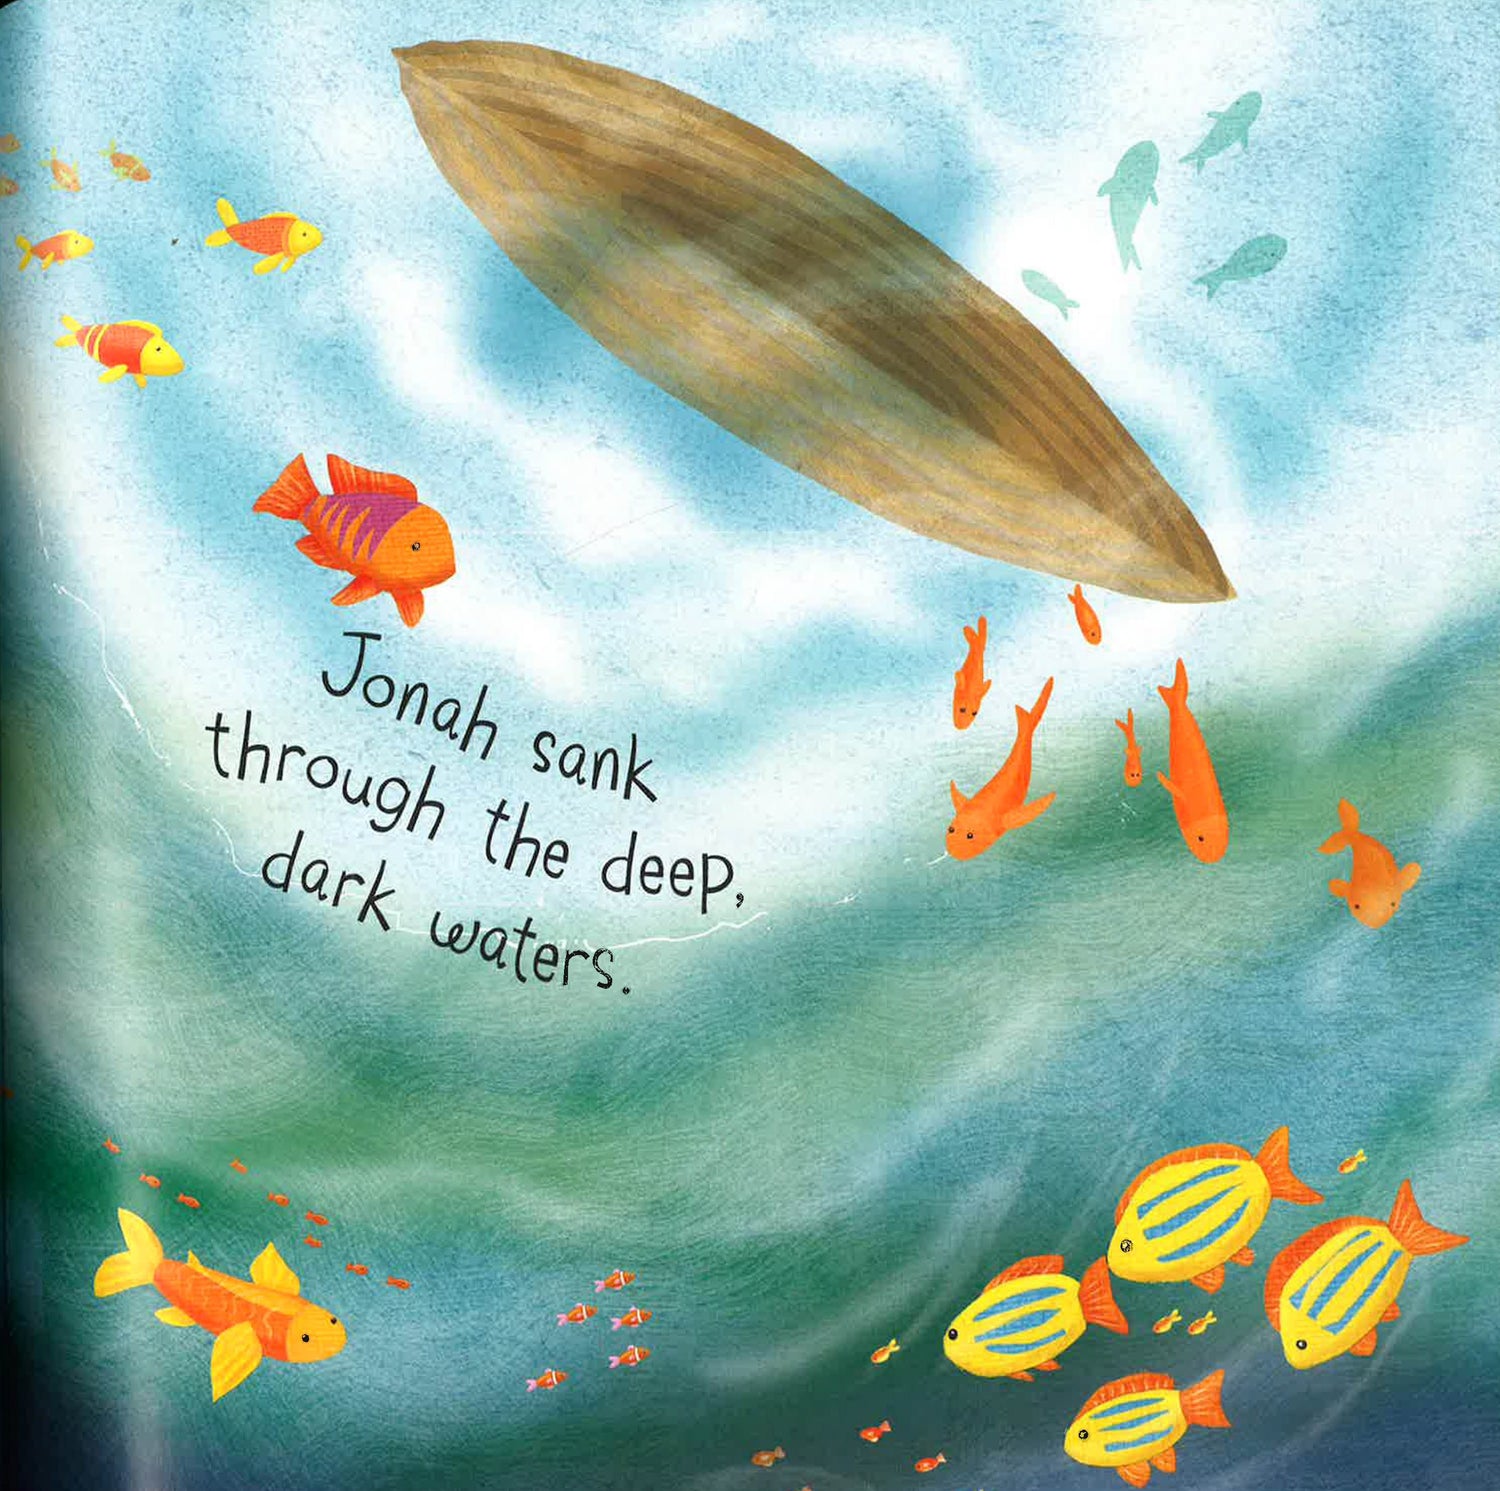 Jonah sank
through the deep,
dark waters.